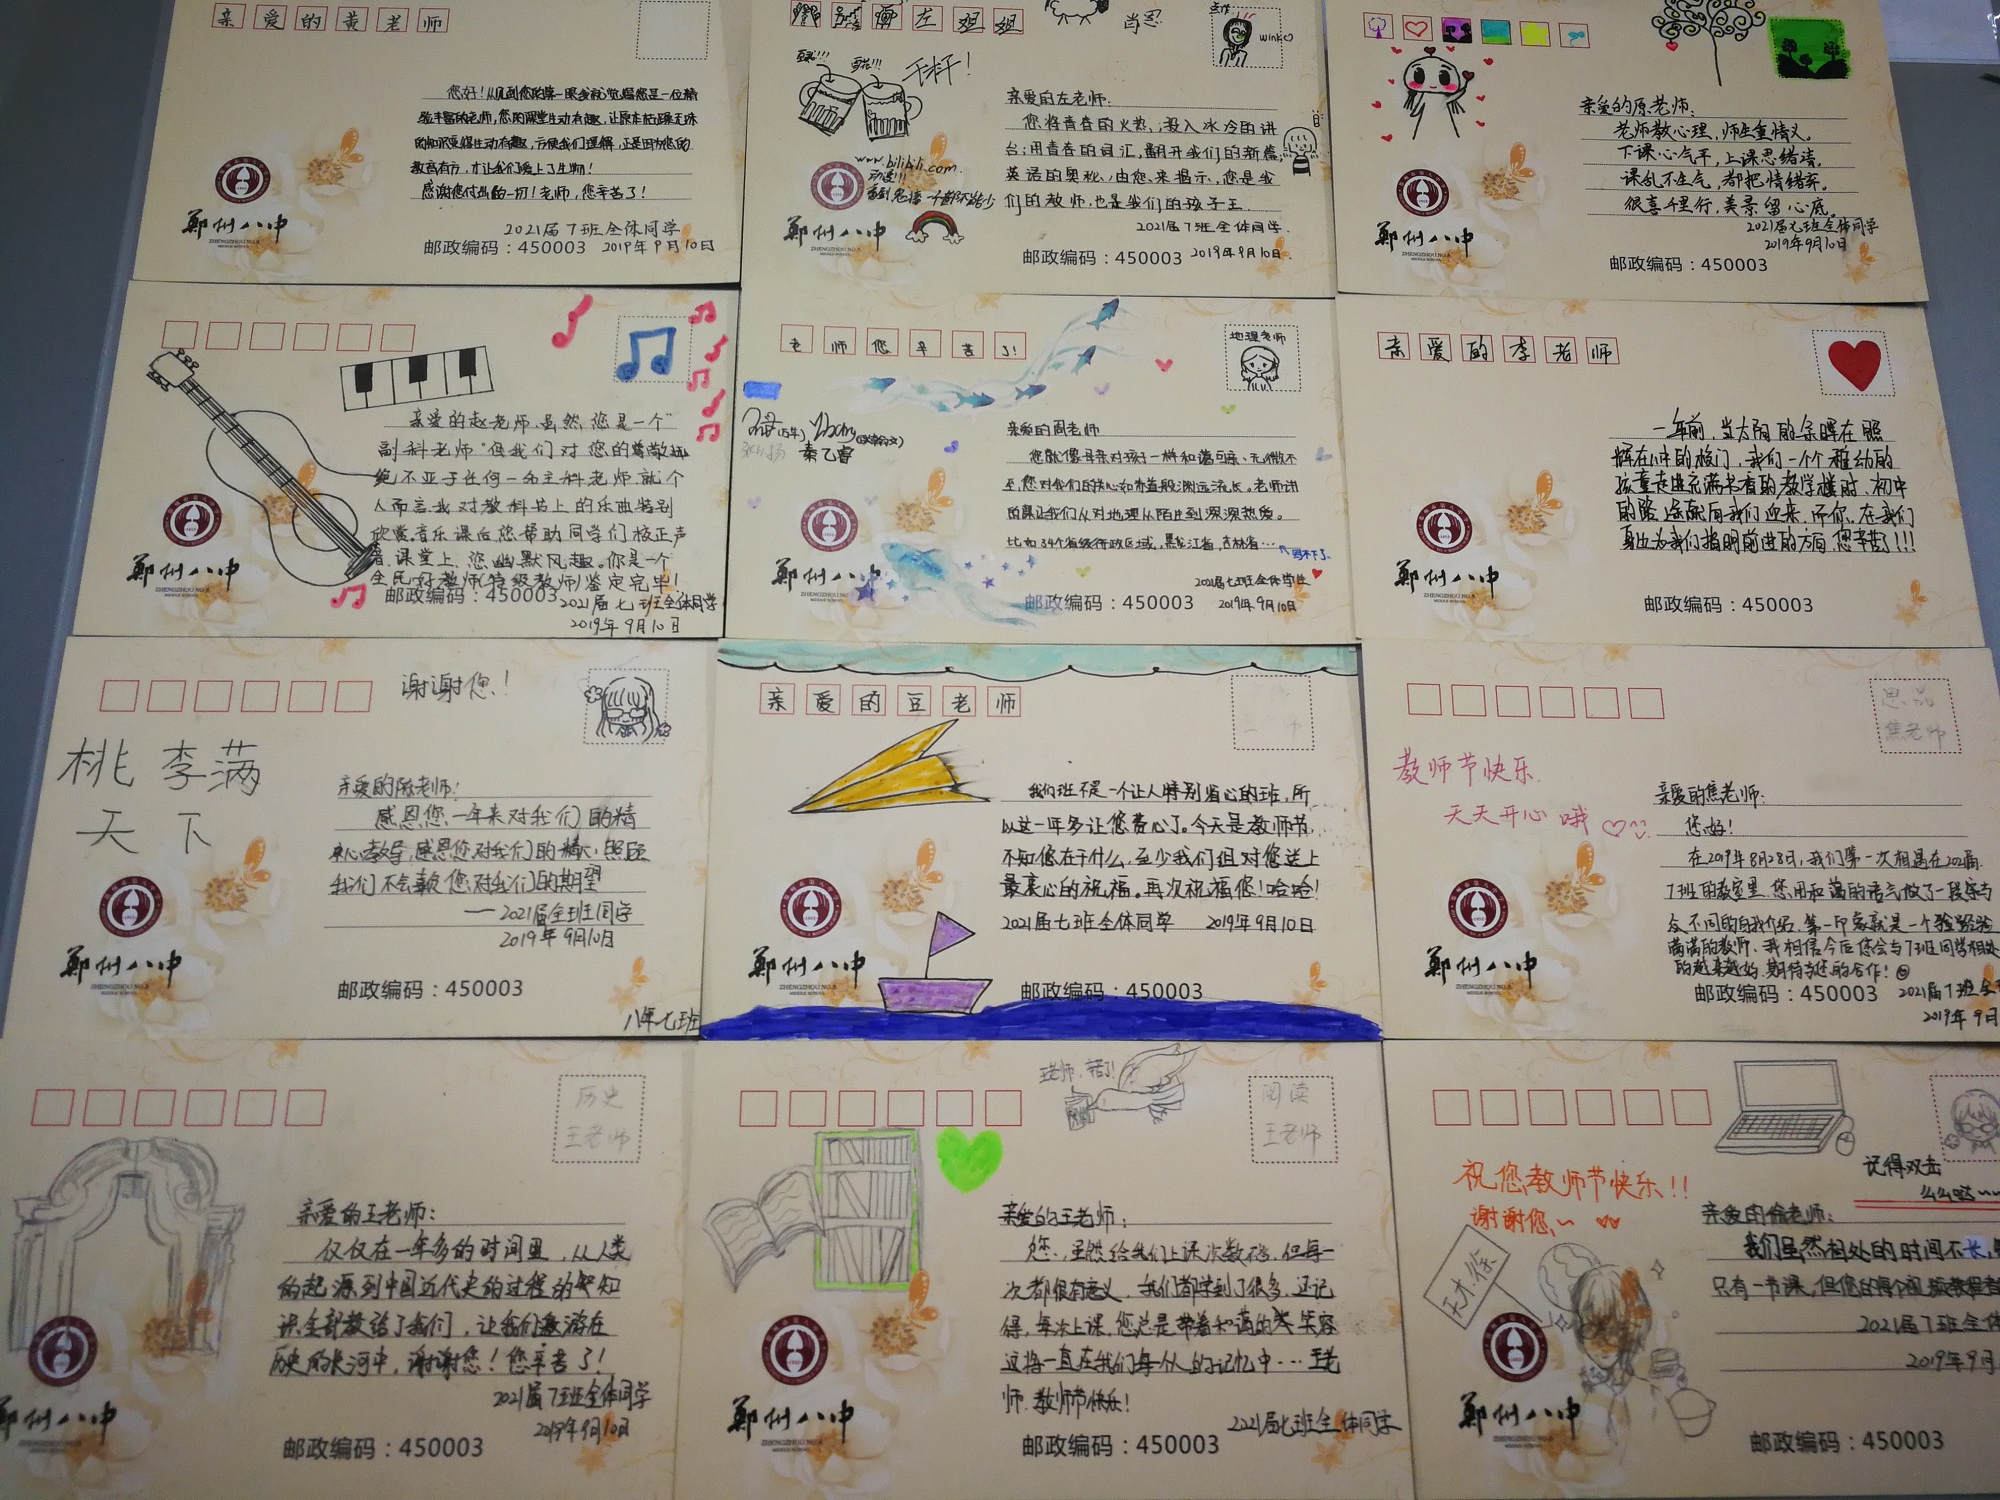 亲爱的黄老师
您好!从见到您的第一眼我就觉得您是一位精
验丰富的老师,您的课堂生动有趣,让原本枯燥无味
的知识变得生动有趣,方便我们理解,正是因为您的
教高有方,才让我们爱上了生物!
感谢您付出的一切!老师,您辛苦了!
2021届7班全体同学
2019年9月10日
郑州八中
ZHENGZHOU NO.8
MIDDLE SCHOOL
邮政编码:450003
左姐姐
干杯!
wink
www.bilibili.com
亲爱的左老师:
您将青春的火热,投入冰冷的讲
台;用青春的词汇,翻开我们的新篇;
英语的奥秘,由您来揭示,您是我
们的教师,也是我们的孩子王.
2021届7班全体同学.
2019年9月10日.
郑州八中
邮政编码:450003
亲爱的原老师:
老师教心理,师生重情义。
下课心气平,上课思绪清。
课乱不生气,都把情绪弃。
很喜千里行,美景留心底。
2021届七班全体同学
2019年9月10日
郑州八中
ZHENGZHOU NO.8
MIDDLE SCHOOL
邮政编码:450003
亲爱的赵老师,虽然,您是一个"
副科老师"但我们对您的尊敬
绝不亚于任何一名主科老师,就个
人而言,我对教科书上的乐曲特别
欣赏,音乐课后,您帮助同学们校正声
音,课堂上,您幽默风趣。你是一个
全民好教师(特级教师)鉴定完毕!
2021届七班全体同学
2019年9月10日
郑州八中
邮政编码:450003
老师您辛苦了!
地理老师
秦乙睿
亲爱的周老师
您就像母亲对孩子一样和蔼可亲、无微不
至,您对我们的关心和亦益般渊远流长。老师讲
的课让我们从对地理从陌生到深深热爱。
比如34个省级行政区域,黑龙江省,吉林省…
写不下了
2021届七班全体学生
2019年9月10日
郑州八中
ZHENGZHOU NO.8
MIDDLE SCHOOL
邮政编码:450003
亲爱的李老师
一年前,当太阳的余晖在照
辉在八中的校门,我们一个个稚幼的
孩童走进充满书香的教学楼时,初中
的路,条条向我们迎来,而你,在我们
身边为我们指明前进的方向,您辛苦了!!!
郑州八中
ZHENGZHOU NO.8
MIDDLE SCHOOL
邮政编码:450003
谢谢您!
桃李满
天下
亲爱的陈老师:
感恩您一年来对我们的精
心教导,感恩您对我们的精心照顾
我们不会辜负您对我们的期望
——2021届全班同学
2019年9月10日
郑州八中
ZHENGZHOU NO.8
MIDDLE SCHOOL
邮政编码:450003
八年七班
亲爱的豆老师
我们班不是一个让人特别省心的班,所
以这一年多让您费心了。今天是教师节,
不知您在干什么,至少我们组对您送上
最衷心的祝福。再次祝福您!哈哈!
2021届七班全体同学 2019年9月10日
郑州八中
邮政编码:450003
思品
焦老师
教师节快乐
天天开心哦
亲爱的焦老师:
您好!
在2019年8月28日,我们第一次相遇在2021届
7班的教室里,您用和蔼的语气做了一段与
众不同的自我介绍,第一印象就是一个经验
满满的教师,我相信今后您会与7班同学相处
的越来越好,期待与您的合作!
2021届7班全
2019年9月
郑州八中
ZHENGZHOU NO.8
MIDDLE SCHOOL
邮政编码:450003
历史
王老师
亲爱的王老师:
仅仅在一年多的时间里,从人类
的起源到中国近代史的过程的知
识全部教给了我们,让我们遨游在
历史的长河中,谢谢您!您辛苦了!
2021届7班全体同学
2019年9月10日
郑州八中
邮政编码:450003
阅读
王老师
亲爱的王老师:
您,虽然给我们上课次数不多,但每一
次都很有意义,我们都学到了很多,还记
得,每次上课,您总是带着和蔼的笑容
这将一直在我们每个人的记忆中…王老
师,教师节快乐!
2021届七班全体同学
郑州八中
ZHENGZHOU NO.8
MIDDLE SCHOOL
邮政编码:450003
记得双击
么么哒~~
祝您教师节快乐!!
谢谢您~
天才徐
亲爱的徐老师:
我们虽然相处的时间不长,
只有一节课,但您的
2021届7班全体
2019年9月
郑州八中
ZHENGZHOU NO.8
MIDDLE SCHOOL
邮政编码:450003